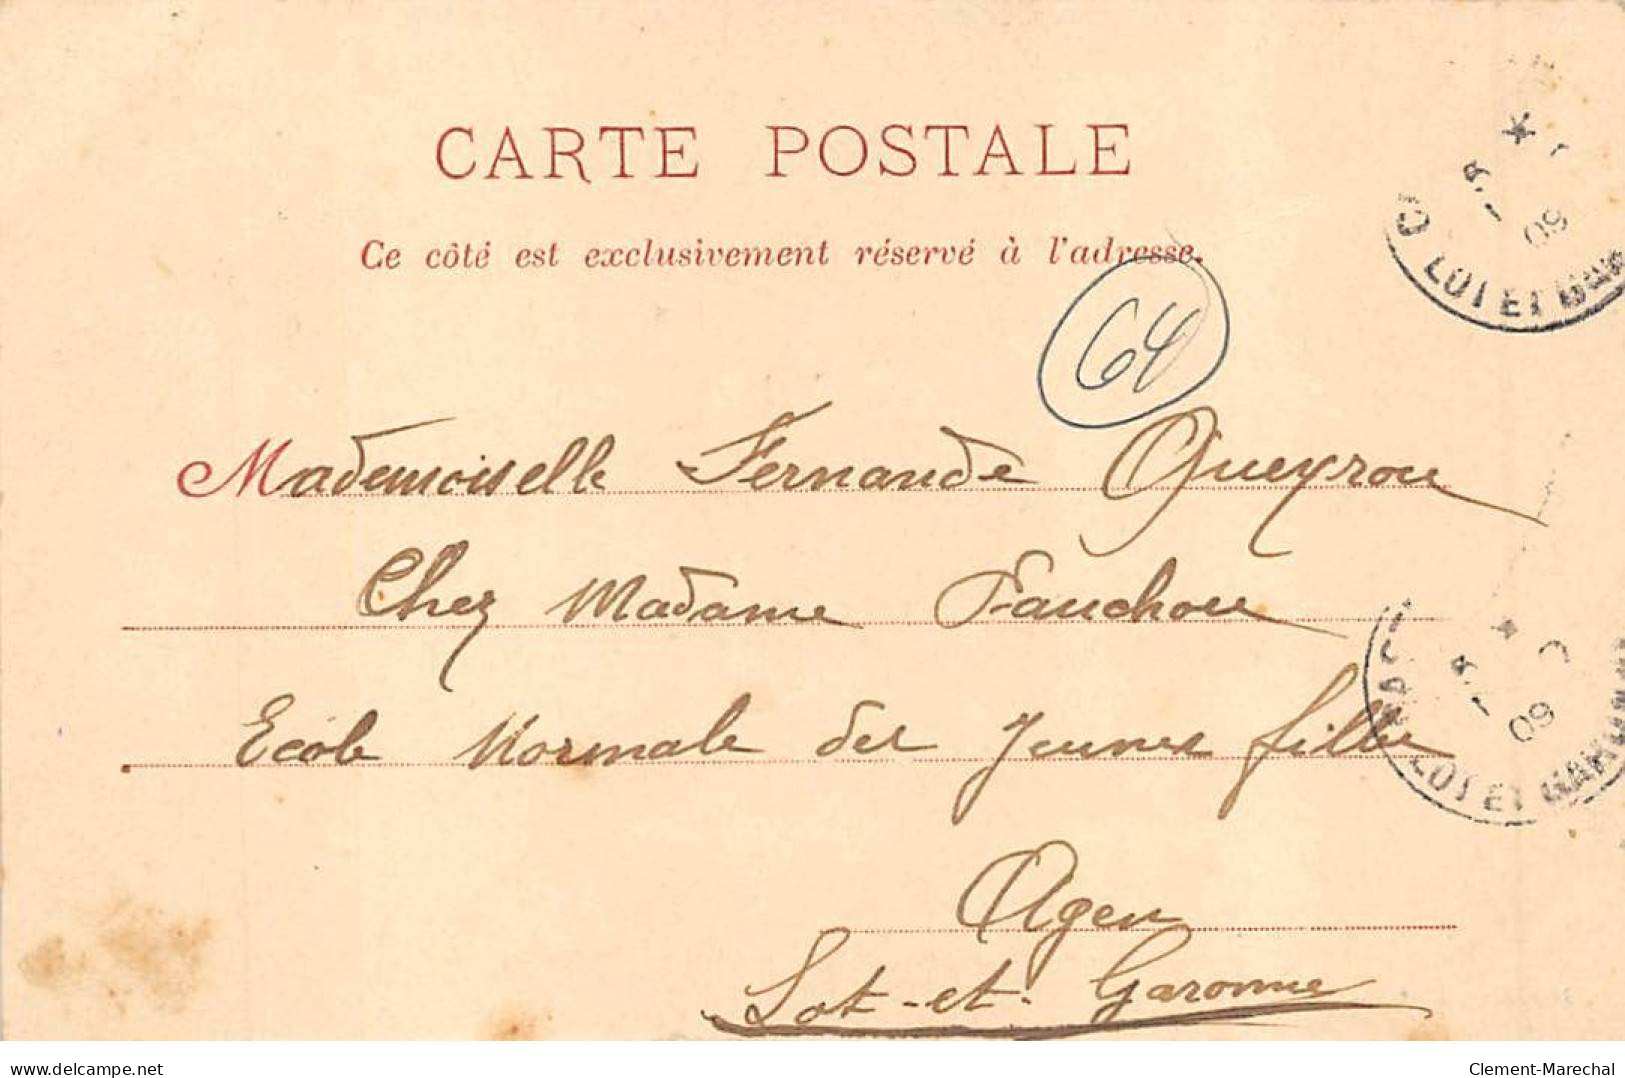 CARTE POSTALE
Ce côté est exclusivement réservé à l'adresse.
64
Mademoiselle Fernande Queyrou
Chez Madame Fauchou
Ecole Normale des Jeunes filles
Agen
Lot-et-Garonne
09
LOT ET GAR
09
LOT ET GARONNE
delcampe.net
Clement-Marechal